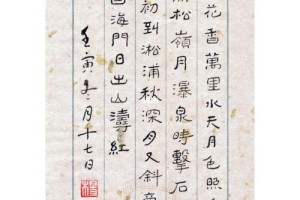 花香萬里水天月色照
松嶺月瀑泉時擊石
初到淞浦秋深月又斜
海門日出山濤紅
壬寅二月十七日